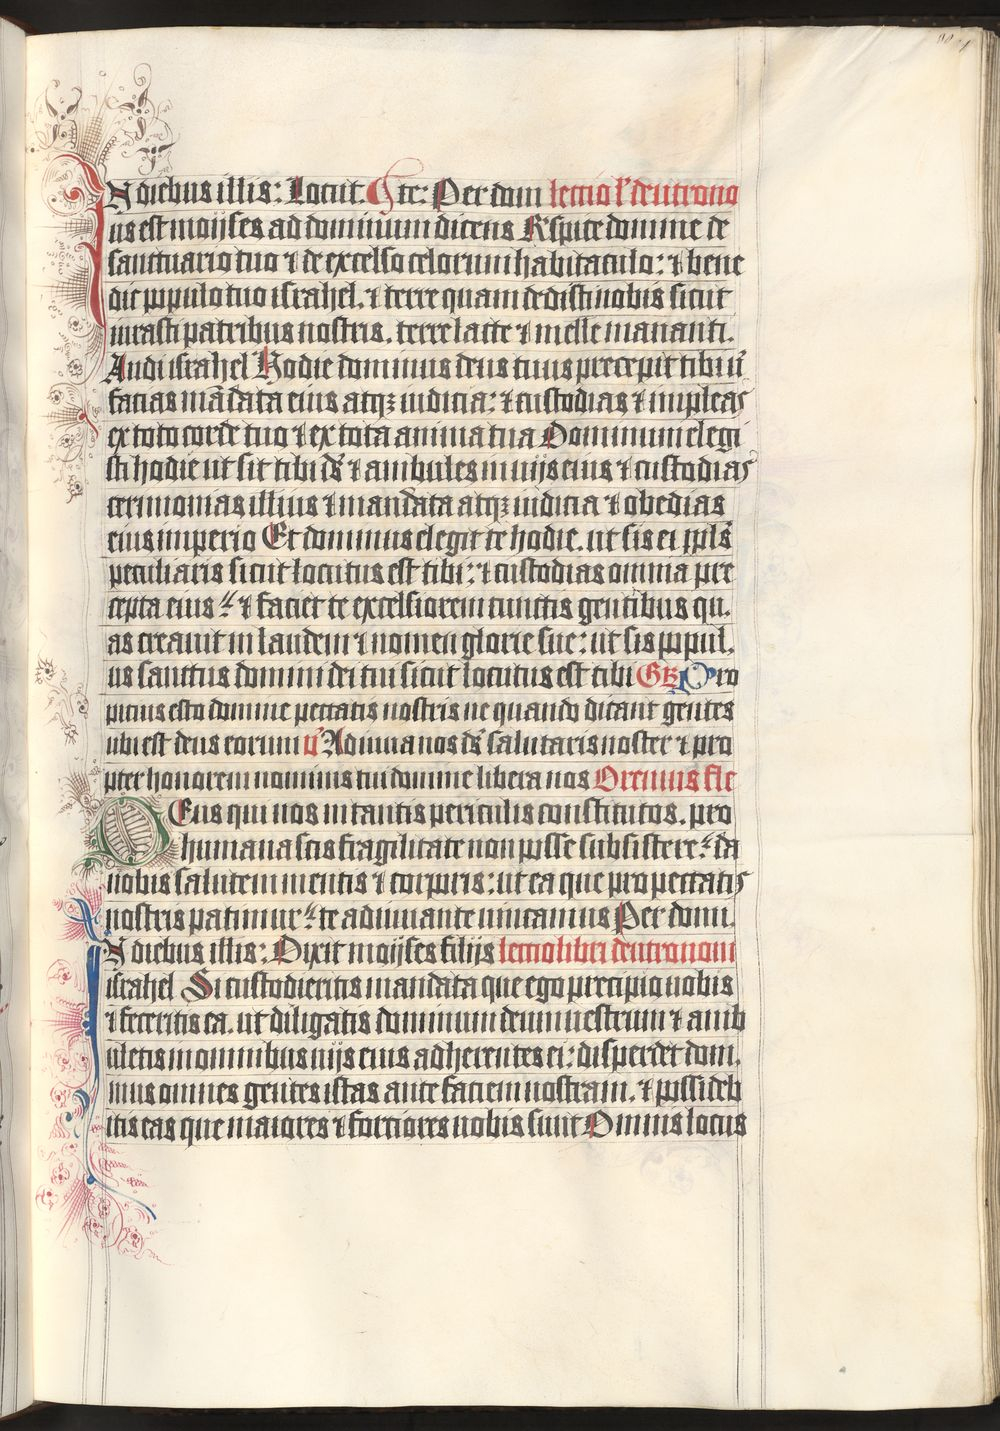 In diebus illis: Locut. te: Per dom lectio l' deutrono
us est moyses ad dominum dicens Respice domine de
sanctuario tuo ⁊ de excelso celorum habitaculo: ⁊ bene
dic populo tuo israhel. ⁊ terre quam dedisti nobis sicut
iurasti patribus nostris. terre lacte ⁊ melle mananti.
Audi israhel Hodie dominus deus tuus precepit tibi ut
facias mādata eius atqꝫ iudicia: ⁊ custodias ⁊ impleas
ex toto corde tuo ⁊ ex tota anima tua Dominum elegi
sti hodie ut sit tibi ds̄ ⁊ ambules in vijs eius ⁊ custodias
cerimonias illius ⁊ mandata atqꝫ iudicia ⁊ obedias
eius imperio Et dominus elegit te hodie. ut sis ei ppls̄
peculiaris sicut locutus est tibi: ⁊ custodias omnia pre
cepta eius ⁊ faciet te excelsiorem cunctis gentibus qu.
as creauit in laudem ⁊ nomen glorie sue: ut sis popul.
us sanctus domini dei tui sicut locutus est tibi Gr Pro
picius esto domine peccatis nostris ne quando dicant gentes
ubi est deus eorum v̄ Adiuua nos ds̄ salutaris noster ⁊ pro
pter honorem nominis tui domine libera nos Oremus flc
Deus qui nos in tantis periculis constitutos. pro
humana scis fragilitate non posse subsistere: da
nobis salutem mentis ⁊ corporis: ut ea que pro peccatis
nostris patimur: te adiuuante uincamus Per domi.
In diebus illis: Dixit moyses filijs lectio libri deutronom
israhel Si custodieritis mandata que ego precipio uobis
⁊ feceritis ea. ut diligatis dominum deum uestrum ⁊ amb
uletis in omnibus uijs eius adherentes ei: disperdet dom.
inus omnes gentes istas ante faciem nostram. ⁊ possideb
itis eas que maiores ⁊ forciores uobis sunt Omnis locus